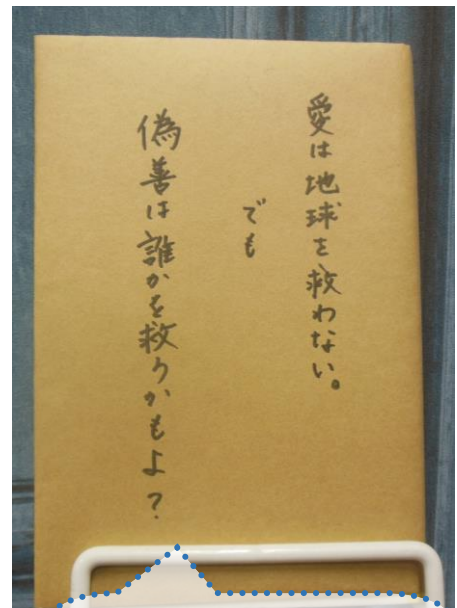 愛は地球を救わない。
でも
偽善は誰かを救うかもよ？